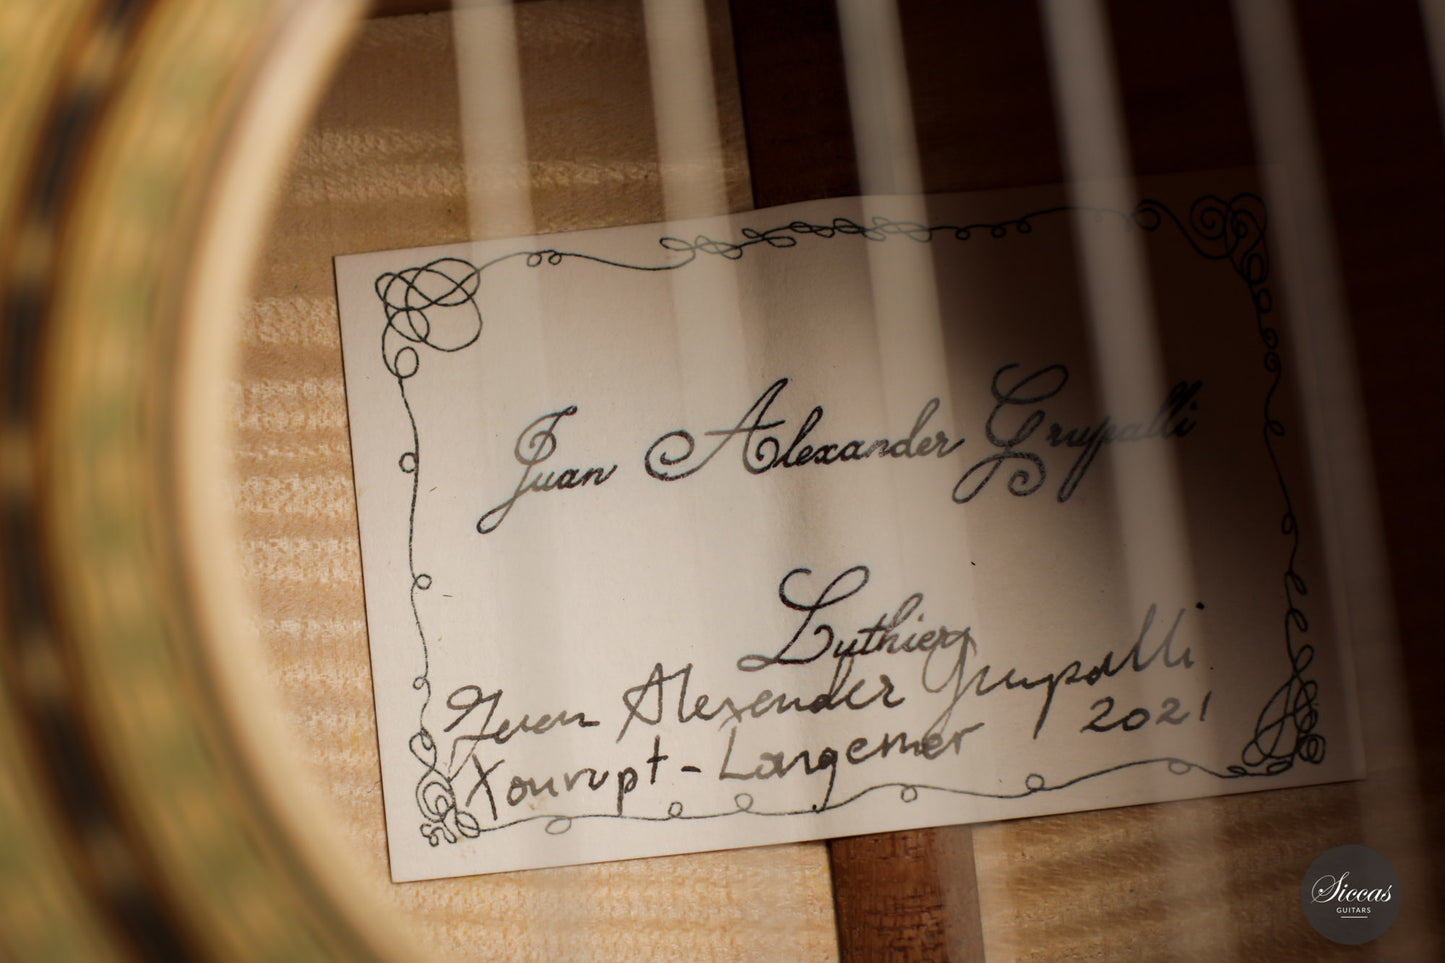 Juan Alexander Grupalli
Luthier
Juan Alexander Grupalli
Xourupt - Langemer 2021
Siccas
GUITARS